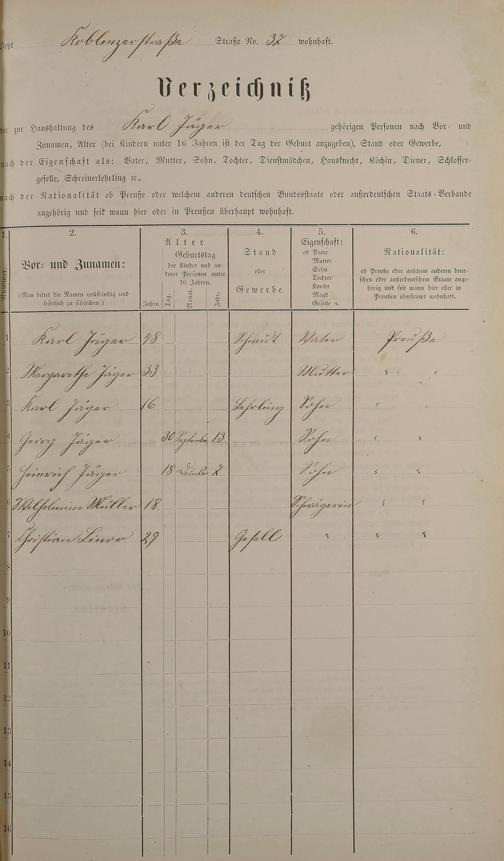 Jetzt Koblenzerstraße Straße No. 37 wohnhaft.
Verzeichniß
der zur Haushaltung des Karl Jäger gehörigen Personen nach Vor- und
Zunamen, Alter (bei Kindern unter 16 Jahren ist der Tag der Geburt anzugeben), Stand oder Gewerbe,
nach der Eigenschaft als: Vater, Mutter, Sohn, Tochter, Dienstmädchen, Hausknecht, Köchin, Diener, Schlosser-
geselle, Schreinerlehrling ec.,
nach der Nationalität ob Preuße oder welchem anderen deutschen Bundesstaate oder außerdeutschen Staats-Verbande
angehörig und seit wann hier oder in Preußen überhaupt wohnhaft.
1. 2. 3. 4. 5. 6.
Nummer.
Vor- und Zunamen:
(Man bittet die Namen vollständig und
leserlich zu schreiben.)
Alter
Geburtstag
der Kinder und an-
derer Personen unter
16 Jahren.
Jahre. Tag. Monat. Jahr.
Stand
oder
Gewerbe.
Eigenschaft:
ob Vater
Mutter
Sohn
Tochter
Knecht
Magd
Geselle ec.
Nationalität:
ob Preuße oder welchem anderen deut-
schen oder außerdeutschen Staate ange-
hörig und seit wann hier oder in
Preußen überhaupt wohnhaft.
1 Karl Jäger 48 Schmidt Vater Preuße
2 Margarethe Jäger 33 Mutter " "
3 Karl Jäger 16 Lehrling Sohn " "
4 Georg Jäger 30 September 13 Sohn " "
5 Heinrich Jäger 18 2 Sohn " "
6 Wilhelmine Müller 18 Schwägerin " "
7 Christian 29 Gesell " " "
8
9
10
11
12
13
14
15
16